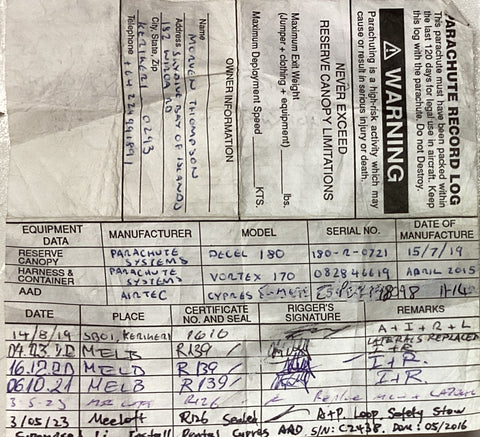 PARACHUTE RECORD LOG
This parachute must have been packed within
the last 120 days for legal use in aircraft. Keep
this log with the parachute. Do not Destroy.
WARNING
Parachuting is a high-risk activity which may
cause or result in serious injury or death.
NEVER EXCEED
RESERVE CANOPY LIMITATIONS
Maximum Exit Weight
(Jumper + clothing + equipment) ____ lbs.
Maximum Deployment Speed ____ KTS.
OWNER INFORMATION
Name MORVEN THOMPSON
Address BAY OF ISLANDS
City, State, Zip
KERIKERI 0293
Telephone
EQUIPMENT DATA MANUFACTURER MODEL SERIAL NO. DATE OF MANUFACTURE
RESERVE CANOPY PARACHUTE SYSTEMS DECEL 180 180-R-0721 15/7/19
HARNESS & CONTAINER PARACHUTE SYSTEMS VORTEX 170 082846619 APRIL 2015
AAD AIRTEC CYPRES 11-14
DATE PLACE CERTIFICATE NO. AND SEAL RIGGER'S SIGNATURE REMARKS
14/8/19 KERIKERI 1610 A+I+R+L
LATERALS REPLACED
MELB R139 I+R
16.12.20 MELB R139 I+R.
06.10.21 MELB R139 I+R
3-5-23 R126
3/05/23 R126 Sealed A+P Loop, Safety Stow
Install Rental Cypres AAD S/N: C2438. DOM: 05/2016